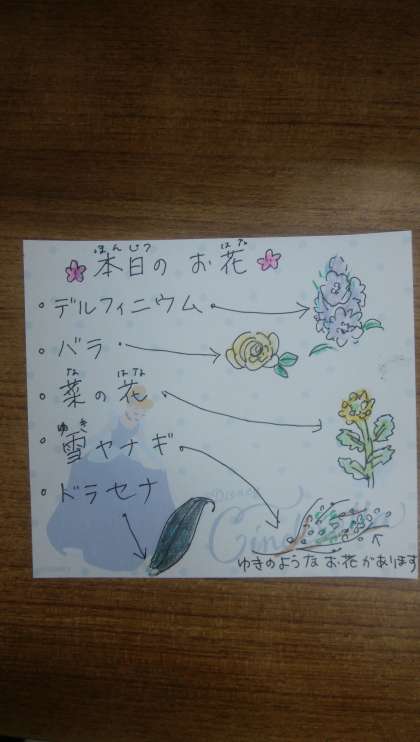 ほんじつ はな
本日の お花
デルフィニウム
バラ
な はな
菜の花
ゆき
雪ヤナギ
ドラセナ
Disney
Cinderella
ゆきのような お花があります